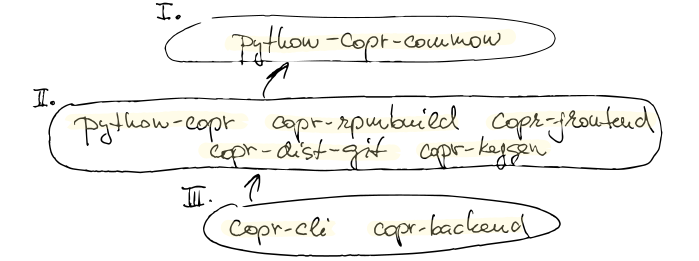 I.
python-copr-common
II.
python-copr copr-rpmbuild copr-frontend
copr-dist-git copr-keygen
III.
copr-cli copr-backend